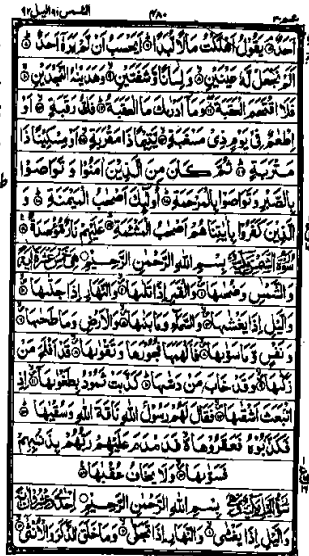 الشمس ٩١ اليل ٩٢ ٤٨٠ عم ٣٠
اَحَدٌ يَقُولُ اَهْلَكْتُ مَالًا لُّبَدًا اَيَحْسَبُ اَنْ لَّمْ يَرَهٗ اَحَدٌ
اَلَمْ نَجْعَلْ لَّهٗ عَيْنَيْنِ وَلِسَانًا وَّشَفَتَيْنِ وَهَدَيْنٰهُ النَّجْدَيْنِ
فَلَا اقْتَحَمَ الْعَقَبَةَ وَمَا اَدْرٰىكَ مَا الْعَقَبَةُ فَكُّ رَقَبَةٍ اَوْ
اِطْعٰمٌ فِيْ يَوْمٍ ذِيْ مَسْغَبَةٍ يَّتِيْمًا ذَا مَقْرَبَةٍ اَوْ مِسْكِيْنًا ذَا
مَتْرَبَةٍ ثُمَّ كَانَ مِنَ الَّذِيْنَ اٰمَنُوْا وَتَوَاصَوْا
بِالصَّبْرِ وَتَوَاصَوْا بِالْمَرْحَمَةِ اُولٰٓئِكَ اَصْحٰبُ الْمَيْمَنَةِ وَ
الَّذِيْنَ كَفَرُوْا بِاٰيٰتِنَا هُمْ اَصْحٰبُ الْمَشْـَٔمَةِ عَلَيْهِمْ نَارٌ مُّؤْصَدَةٌ
سورة الشمس مكية بِسْمِ اللّٰهِ الرَّحْمٰنِ الرَّحِيْمِ هي خمس عشرة اية
وَالشَّمْسِ وَضُحٰىهَا وَالْقَمَرِ اِذَا تَلٰىهَا وَالنَّهَارِ اِذَا جَلّٰىهَا
وَالَّيْلِ اِذَا يَغْشٰىهَا وَالسَّمَآءِ وَمَا بَنٰىهَا وَالْاَرْضِ وَمَا طَحٰىهَا
وَنَفْسٍ وَّمَا سَوّٰىهَا فَاَلْهَمَهَا فُجُوْرَهَا وَتَقْوٰىهَا قَدْ اَفْلَحَ مَنْ
زَكّٰىهَا وَقَدْ خَابَ مَنْ دَسّٰىهَا كَذَّبَتْ ثَمُوْدُ بِطَغْوٰىهَا اِذِ
انْۢبَعَثَ اَشْقٰىهَا فَقَالَ لَهُمْ رَسُوْلُ اللّٰهِ نَاقَةَ اللّٰهِ وَسُقْيٰهَا
فَكَذَّبُوْهُ فَعَقَرُوْهَا فَدَمْدَمَ عَلَيْهِمْ رَبُّهُمْ بِذَنْۢبِهِمْ
فَسَوّٰىهَا وَلَا يَخَافُ عُقْبٰهَا
سورة اليل مكية بِسْمِ اللّٰهِ الرَّحْمٰنِ الرَّحِيْمِ احدى وعشرون اية
وَالَّيْلِ اِذَا يَغْشٰى وَالنَّهَارِ اِذَا تَجَلّٰى وَمَا خَلَقَ الذَّكَرَ وَالْاُنْثٰى